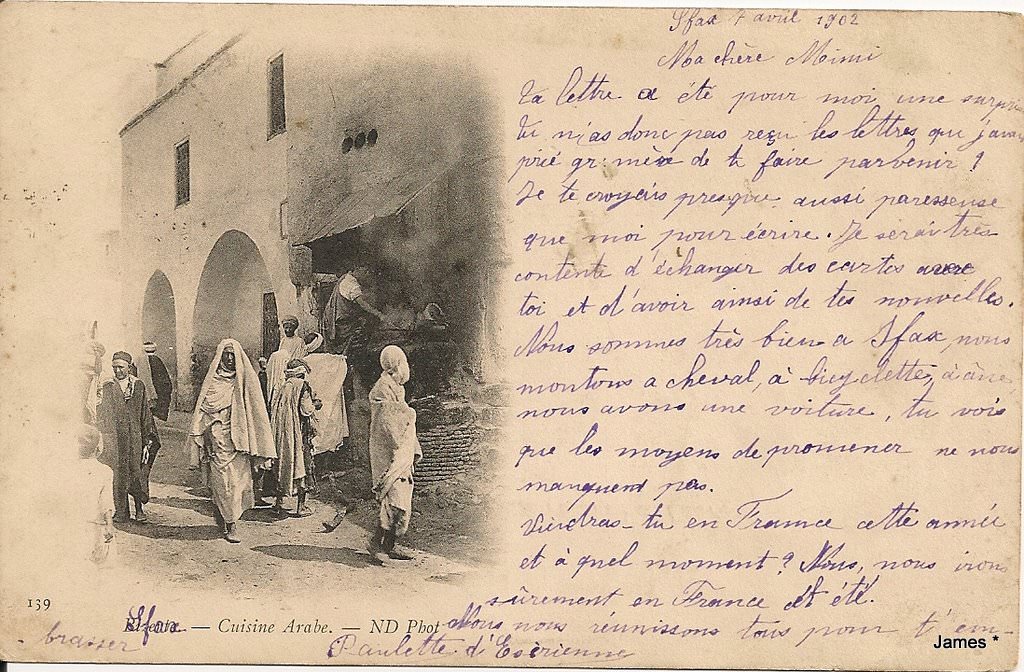 Sfax 7 avril 1902
Ma chère Mimi
Ta lettre a été pour moi une surprise
tu n'as donc pas reçu les lettres que j'avais
prié gr. mère de te faire parvenir ?
Je te croyais presque aussi paresseuse
que moi pour écrire. Je serais très
contente d'échanger des cartes avec
toi et d'avoir ainsi de tes nouvelles.
Nous sommes très bien a Sfax, nous
montons a cheval, à bicyclette, à âne
nous avons une voiture, tu vois
que les moyens de promener ne nous
manquent pas.
Viendras-tu en France cette année
et à quel moment ? Nous, nous irons
sûrement en France cet été.
Nous nous réunissons tous pour t'em-
brasser
Paulette
139
Sfax — Cuisine Arabe. — ND Phot
James *